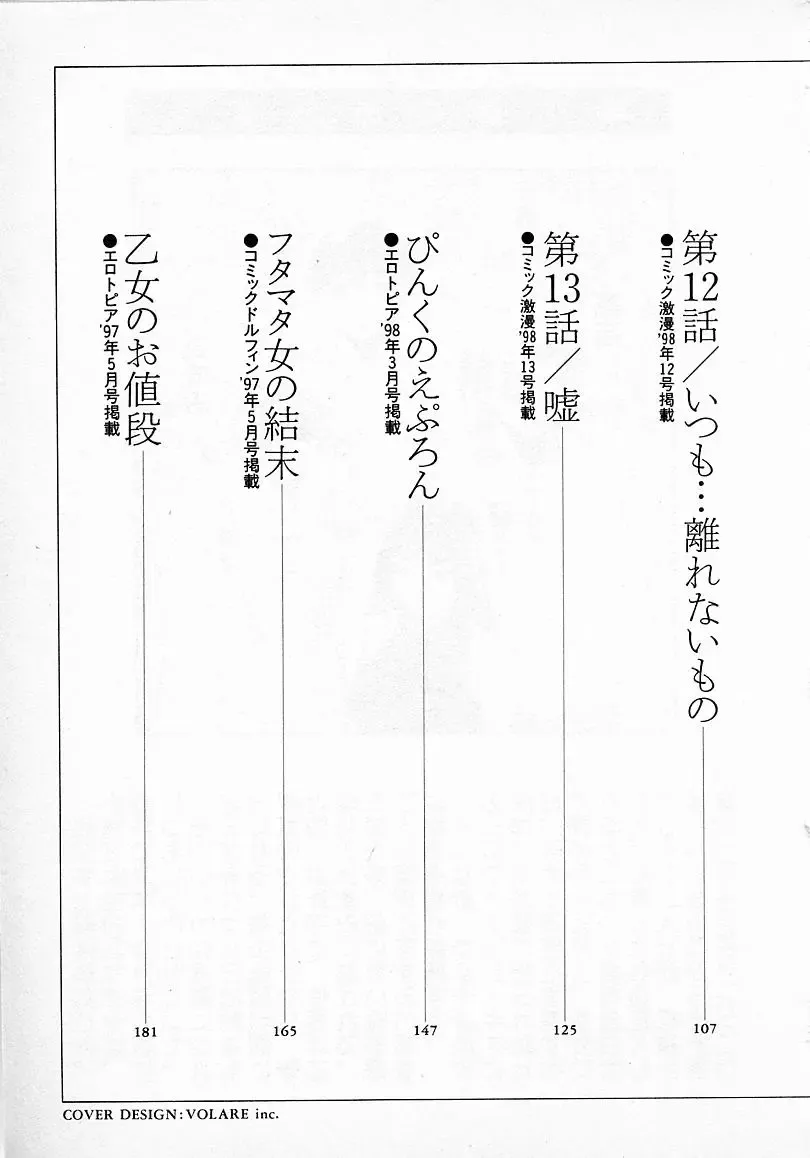 第12話／いつも…離れないもの
107
●コミック激漫'98年12号掲載
第13話／嘘
125
●コミック激漫'98年13号掲載
ぴんくのえぷろん
147
●エロトピア'98年3月号掲載
フタマタ女の結末
165
●コミックドルフィン'97年5月号掲載
乙女のお値段
181
●エロトピア'97年5月号掲載
COVER DESIGN:VOLARE inc.